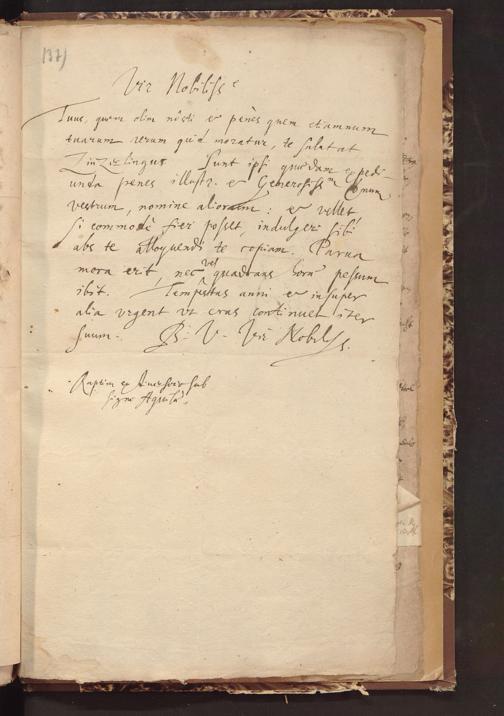 137)
Vir Nobiliss e
Tuus, quem olim nôsti et penès quem etiamnum
tuarum rerum quid moratur, te salutat
Zinzerlingus Sunt ipsi quaedam expedi-
unda penes illustr. et Generosiss m
vestrum, nomine aliorum: et vellet
si commodè fieri posset, indulgeri sibi
abs te alloquendi te copiam. Parua
mora erit, nec vel quadrans hor pessum
ibit. Tempestas anni et insuper
alia urgent vt cras continuet iter
suum. B. V. Vir Nobiliss.
Raptim ex diuersorio sub
signo Aquilae.